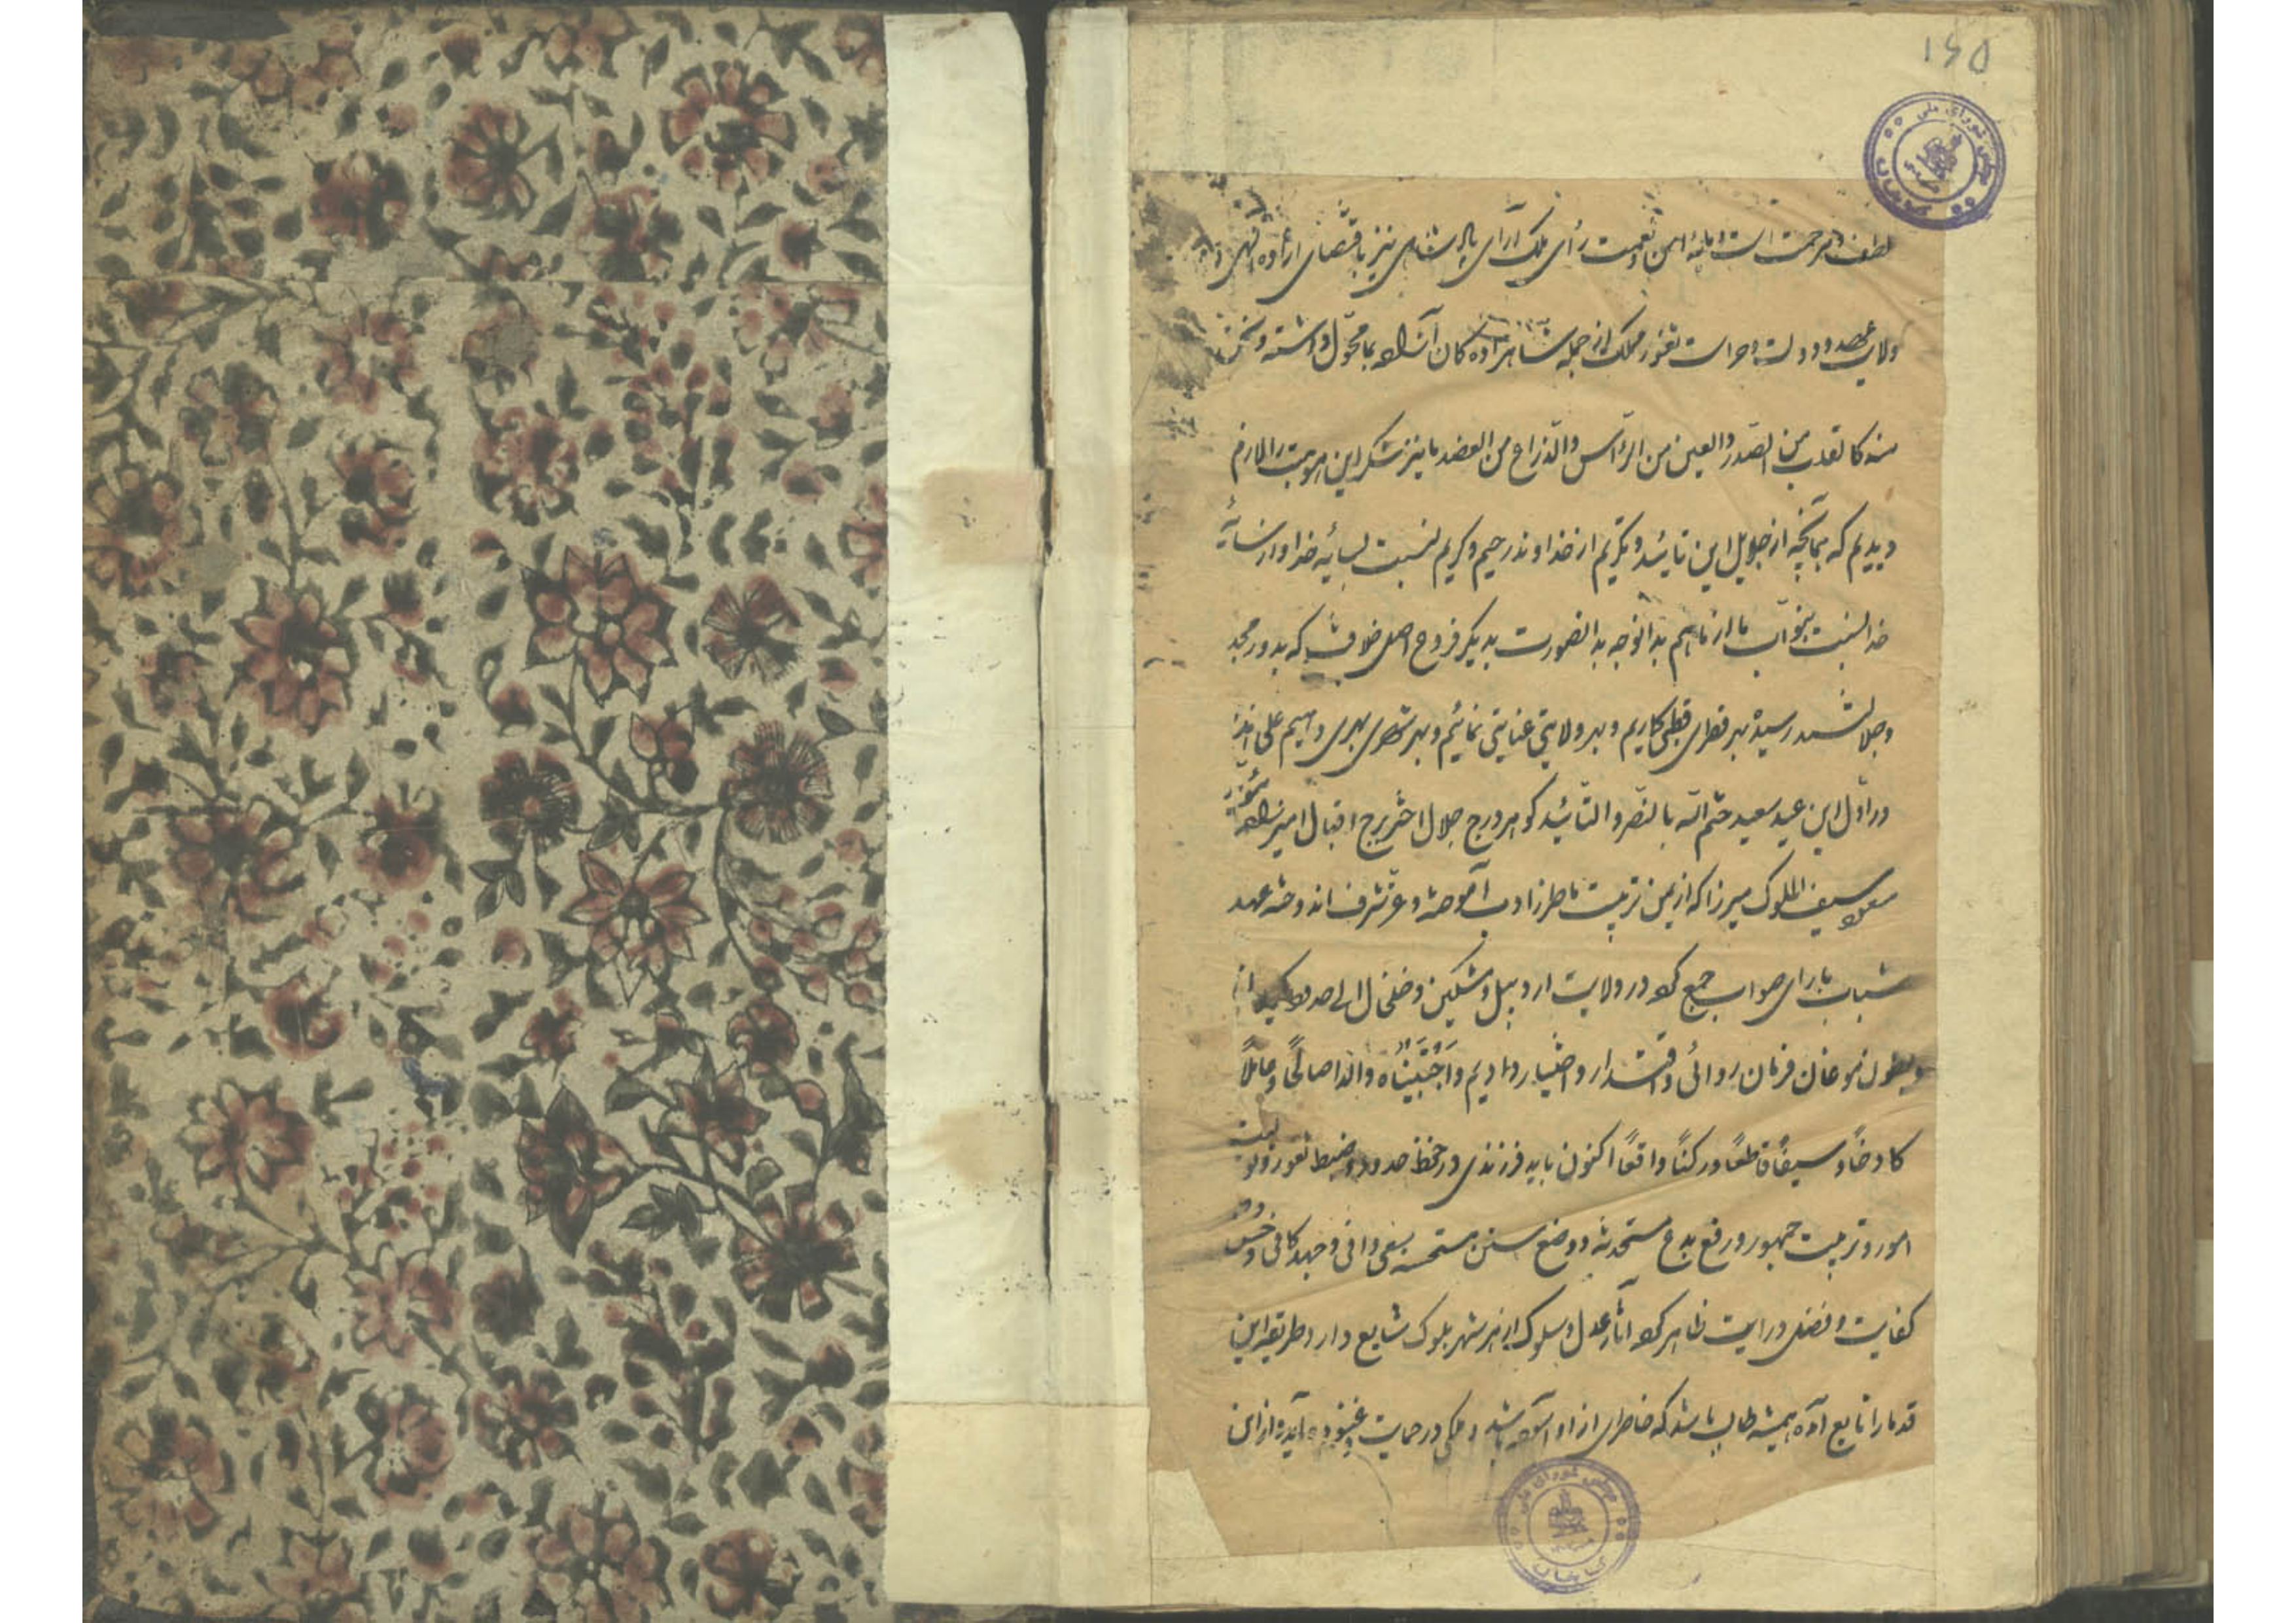 ۱۶۵
مجلس شورای ملی
کتابخانه
لطف و مرحمت است و این نعمت رأی ملک آرای پادشاهی نیز باقتضای اراده الهی
ولایت عهد دولت و حراست ثغور مملکت از جمله شاهزاده کان آزاده بما محول داشته و نحن
منه کالقلب من الصدر والعین من الرأس والذراع من العضد ما نیز شکر این موهبت را لازم
دیدیم که چنانچه از جلایل این تائید و تکریم از خداوند رحیم و کریم نسبت بسایه خدا و از سایهٔ
خدا نسبت بنوّاب ما از ما هم بهذالوجه بهذالصورت بدیگر فروع اصل خلافت که بدور مجد
و جلالت رسیده بهر قطری قطبی کاریم و بهر ولایتی عنایتی نمائیم و بهر شهری بهری دهیم علی هذا
در اوّل این عید سعید ختم اللّه بالنصر و التائید کوهر درج جلال اختر برج اقبال امیرزاده مؤید
مسعود سیف الملوک میرزا که از یمن تربیت ما طرز ادب آموخته و عز و شرف اندوخته عهد
شباب با رای صواب جمع کرده در ولایت اردبیل و مشکین و خلخال الی حدود کیلان
و طول موغان فرمان روائی و اقتدار و اختیار دادیم وَاجْتَبَیْنٰاه والداً صالحاً و عاملاً
کادحاً و سیفاً قاطعاً و رکناً واقعاً اکنون باید فرزندی در حفظ حدود و ضبط ثغور و تولیت
امور و تربیت جمهور و رفع بدع مستحدثه و وضع سنن مستحسنه بسعی وافی و جهد کافی و حسن
کفایت و فضل درایت ظاهر کرده آثار عدل و سلوک از هر شهر بلوک شایع دارد و طریقه این
قدما را تابع آمده همیشه طالب باشد که خاطری از او آسوده باشد و ملکی در حمایت غنوده آید و از این
مجلس شورای ملی
کتابخانه